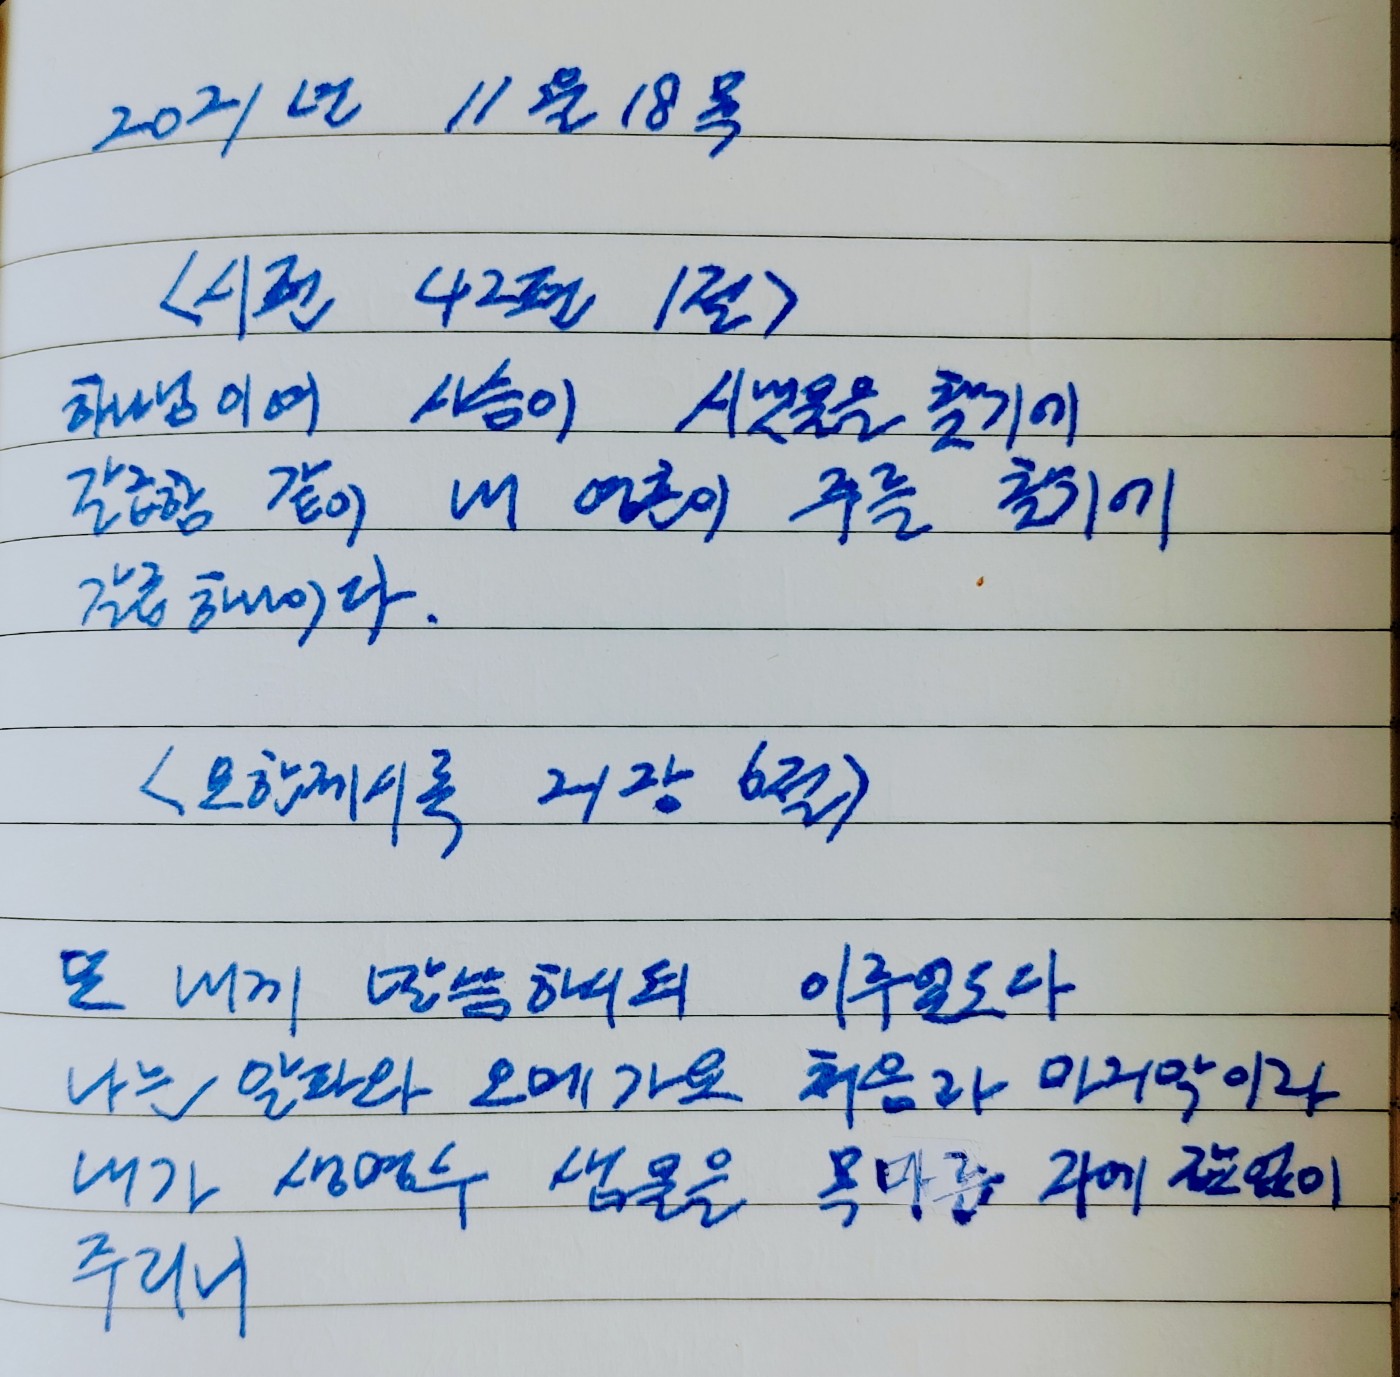 2021년 11월 18목
<시편 42편 1절>
하나님이여 사슴이 시냇물을 찾기에
갈급함 같이 내 영혼이 주를 찾기에
갈급하나이다.
<요한계시록 21장 6절>
또 내게 말씀하시되 이루었도다
나는 알파와 오메가요 처음과 마지막이라
내가 생명수 샘물을 목마른 자에게 값없이
주리니